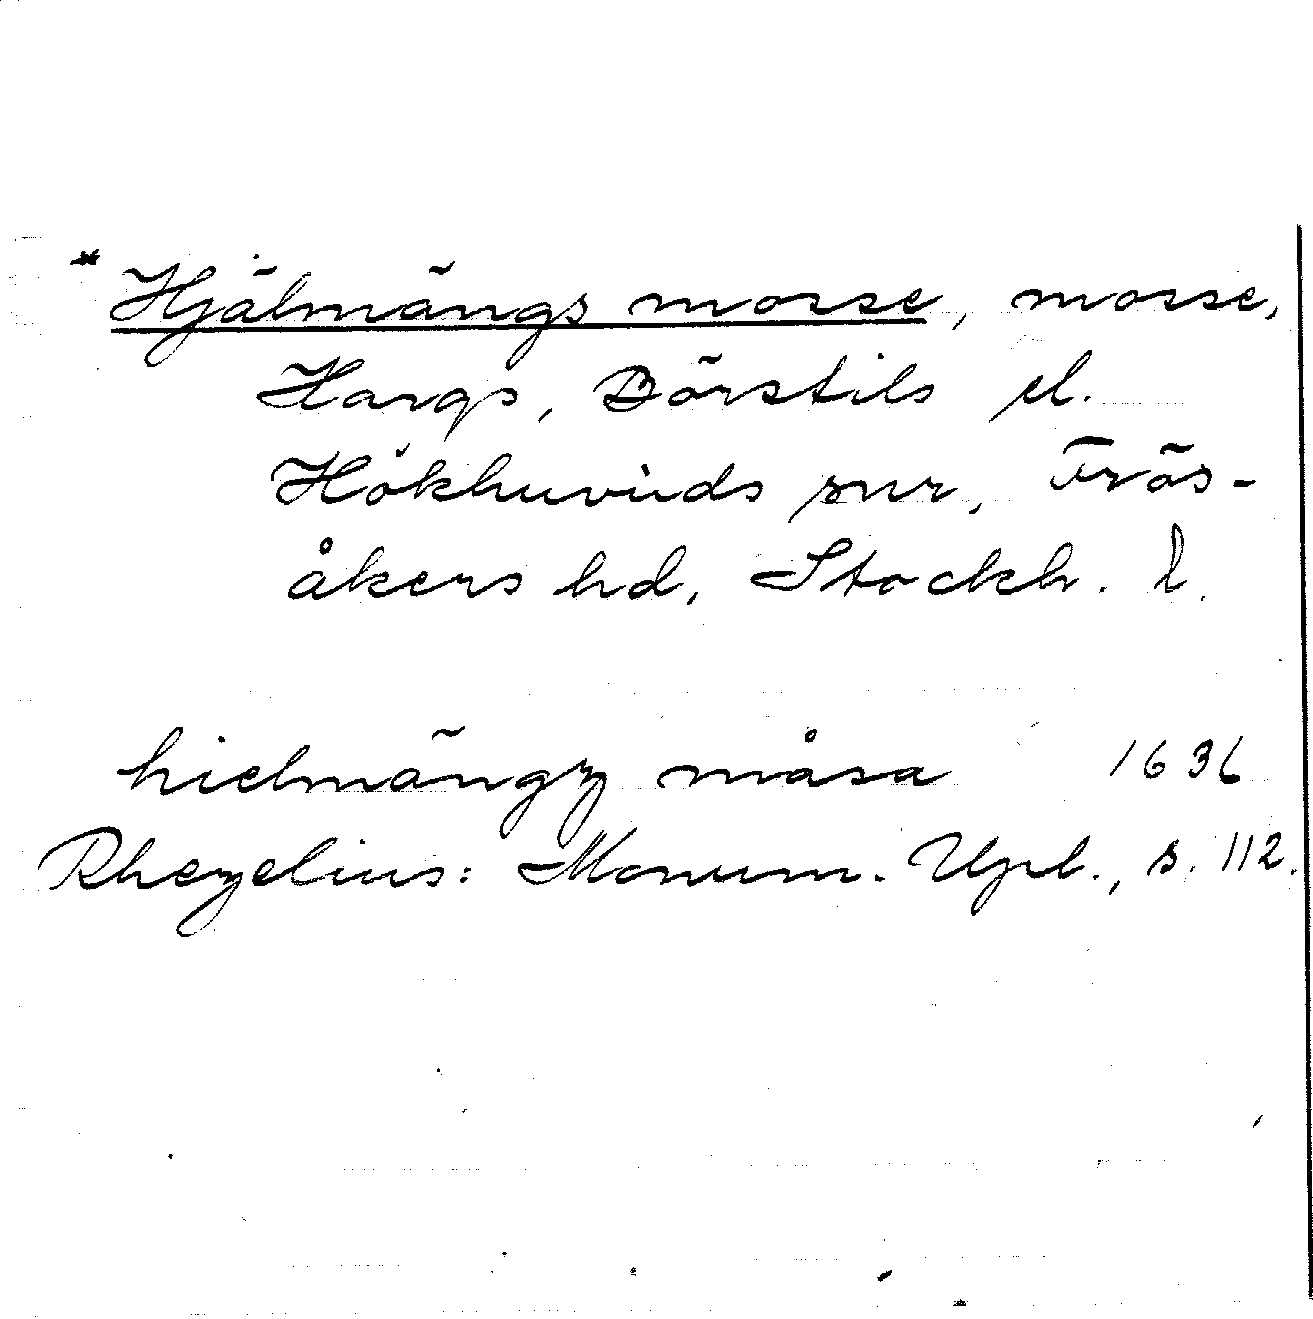 * Hjälmängs mosse, mosse,
Hargs, Börstils el.
Hökhuvuds snr, Frös-
åkers hd, Stockh. l.
hielmängz måsa 1636
Rhezelius: Monum. Upl., s. 112.